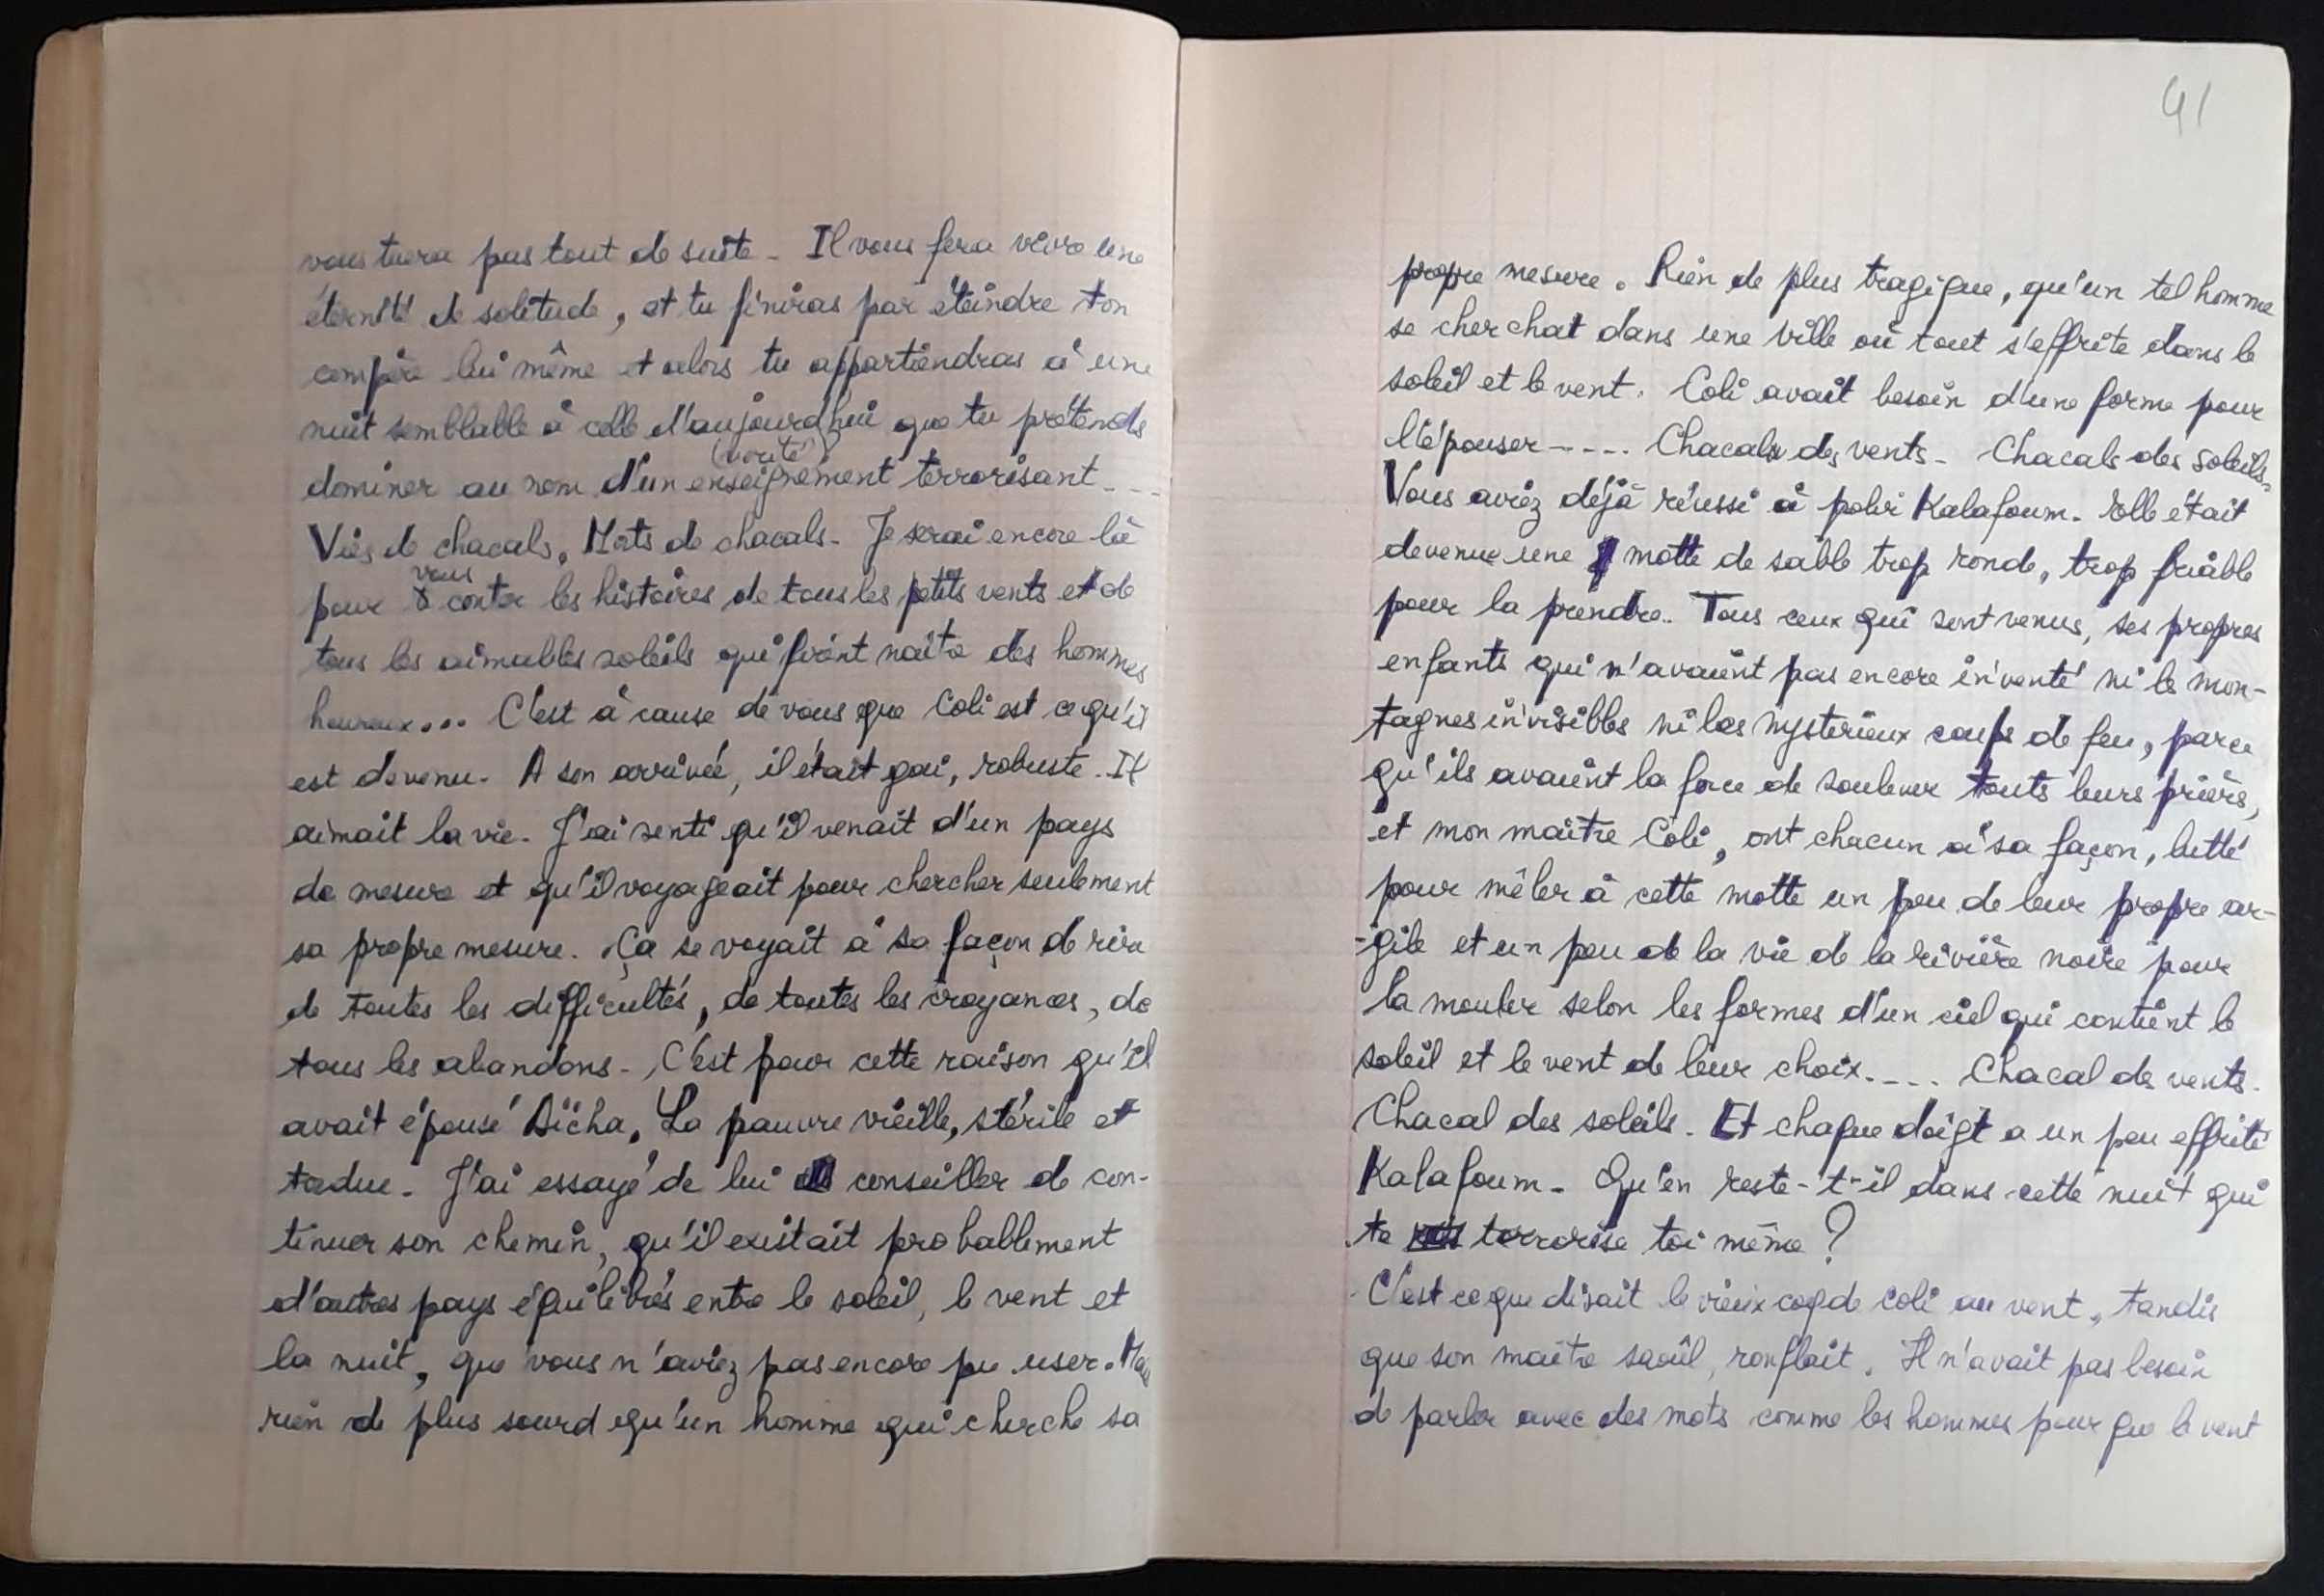 vous tuera pas tout de suite - Il vous fera vivre une
éternité de solitude, et tu finiras par éteindre ton
compère lui même et alors tu appartiendras à une
nuit semblable à celle d'aujourd'hui que tu prétends
(vérité)
dominer au nom d'un enseignement terrorisant ---
Vies de chacals. Morts de chacals - Je serai encore là
vous
pour conter les histoires de tous les petits vents et de
tous les aimables soleils qui firent naître des hommes
heureux... C'est à cause de vous que Coli est ce qu'il
est devenu - A son arrivée, il était gai, robuste. Il
aimait la vie - J'ai senti qu'il venait d'un pays
de mesure et qu'il voyageait pour chercher seulement
sa propre mesure. Ça se voyait à sa façon de rire
de toutes les difficultés, de toutes les croyances, de
tous les abandons - C'est pour cette raison qu'il
avait épousé Aïcha. La pauvre vieille, stérile et
tordue - J'ai essayé de lui conseiller de con-
tinuer son chemin, qu'il existait probablement
d'autres pays équilibrés entre le soleil, le vent et
la nuit, que vous n'aviez pas encore pu user. Mais
rien de plus sourd qu'un homme qui cherche sa
41
propre mesure. Rien de plus tragique, qu'un tel homme
se cherchat dans une ville où tout s'effrite dans le
soleil et le vent. Coli avait besoin d'une forme pour
l'épouser ----. Chacals des vents - Chacals des soleils -
Vous aviez déjà réussi à polir Kalafoum - Elle était
devenue une motte de sable trop ronde, trop friable
pour la prendre. Tous ceux qui sont venus, ses propres
enfants qui n'avaient pas encore inventé ni les mon-
tagnes invisibles ni les mystérieux coups de feu, parce
qu'ils avaient la force de soulever touts leurs prières,
et mon maître Coli, ont chacun à sa façon, lutté
pour mêler à cette motte un peu de leur propre ar-
-gile et un peu de la vie de la rivière noire pour
la mouler selon les formes d'un ciel qui contient le
soleil et le vent de leur choix. --- . Chacal des vents -
Chacal des soleils - Et chaque doigt a un peu effrité
Kalafoum - Qu'en reste-t-il dans cette nuit qui
te terrorise toi même ?
C'est ce que disait le vieux coq de Coli au vent, tandis
que son maître saoûl, ronflait. Il n'avait pas besoin
de parler avec des mots comme les hommes pour que le vent